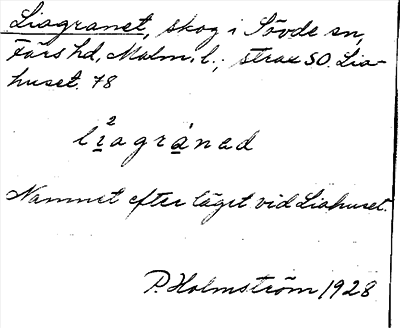 Liagranet, skog i Sövde sn,
Färs hd, Malm. l.; strax SO. Lia-
huset. 78
l i̱²agra̱nad
Namnet efter läget vid Liahuset.
P. Holmström 1928